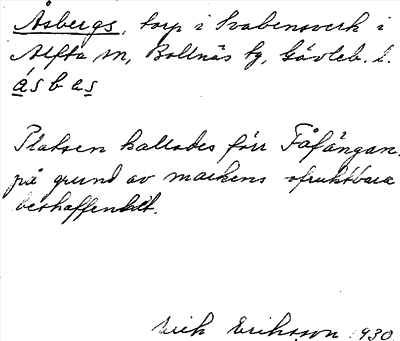 Åsbergs, torp i Svabensverk i
Alfta sn, Bollnäs tg, Gävleb. l.
åsbas
Platsen kallades förr Fåfängan.
på grund av markens ofruktbara
beskaffenhet.
Erik Eriksson 1930.